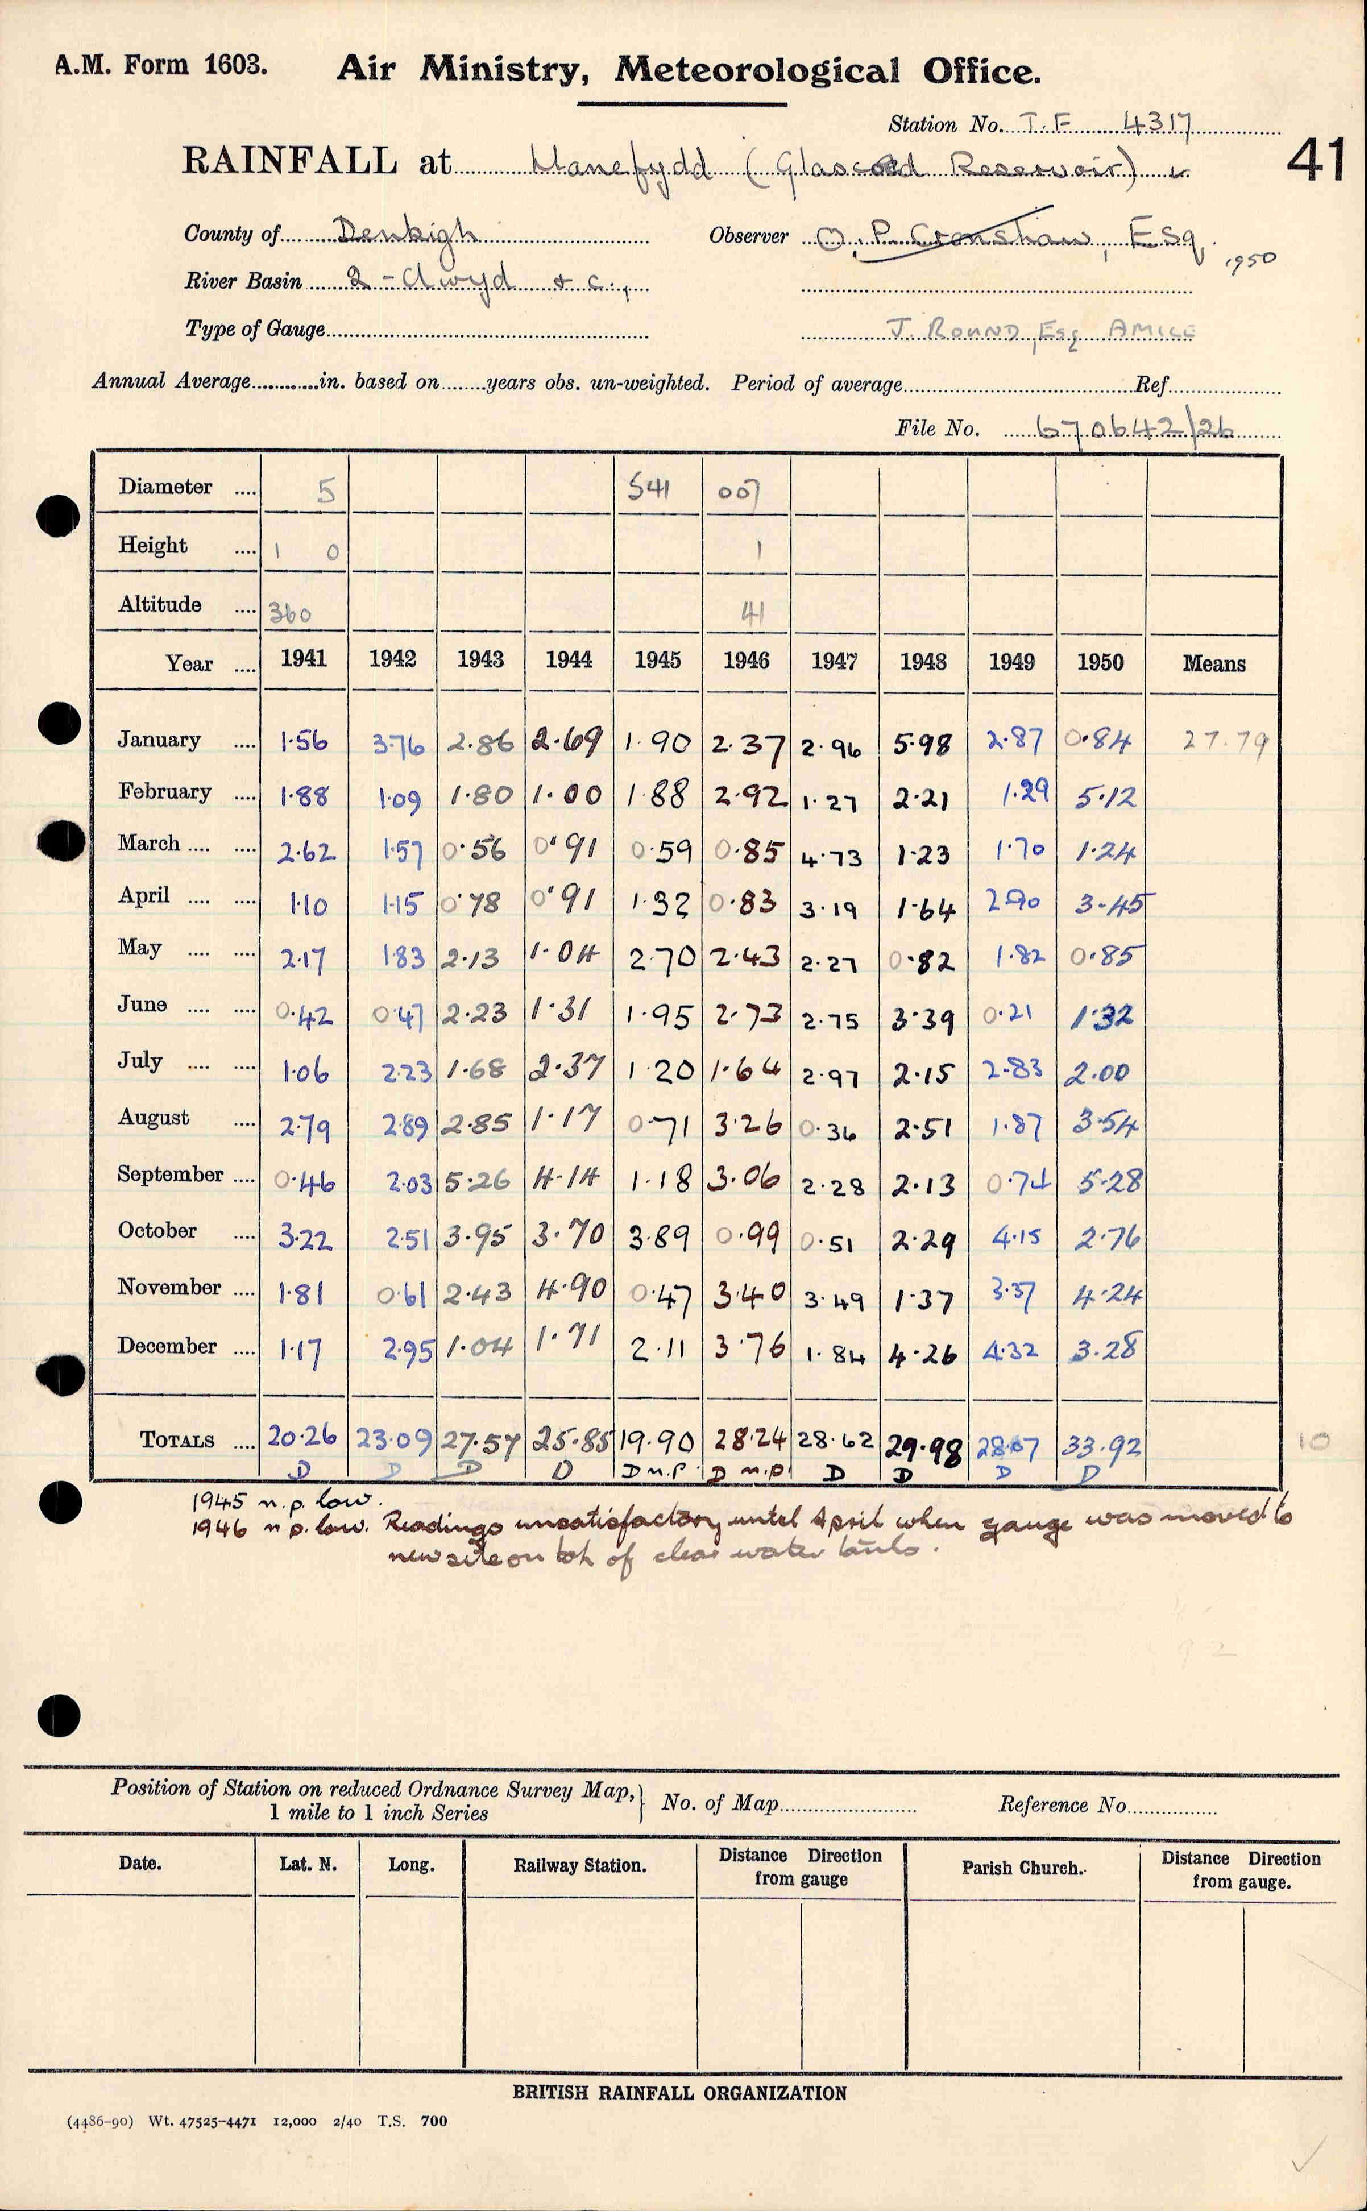 A.M. Form 1603. Air Ministry, Meteorological Office.
Station No. T.F 4317
RAINFALL at Llanefydd (Glascoed Reservoir) 41
County of Denbigh Observer O. P. Cronshaw, Esq. 1950
River Basin 2 - Clwyd & c.,
Type of Gauge J. ROUND, Esq AMICE
Annual Average in. based on years obs. un-weighted. Period of average Ref
File No. 670642/26
Diameter .... 5 541 007
Height .... 1 0 1
Altitude .... 360 41
Year .... 1941 1942 1943 1944 1945 1946 1947 1948 1949 1950 Means
January .... 1.56 3.76 2.86 2.69 1.90 2.37 2.96 5.98 2.87 0.84 27.79
February .... 1.88 1.09 1.80 1.00 1.88 2.92 1.27 2.21 1.29 5.12
March .... .... 2.62 1.57 0.56 0.91 0.59 0.85 4.73 1.23 1.70 1.24
April .... .... 1.10 1.15 0.78 0.91 1.32 0.83 3.19 1.64 2.90 3.45
May .... .... 2.17 1.83 2.13 1.04 2.70 2.43 2.27 0.82 1.82 0.85
June .... .... 0.42 0.47 2.23 1.31 1.95 2.73 2.75 3.39 0.21 1.32
July .... .... 1.06 2.23 1.68 2.37 1.20 1.64 2.97 2.15 2.83 2.00
August .... 2.79 2.89 2.85 1.17 0.71 3.26 0.36 2.51 1.87 3.54
September .... 0.46 2.03 5.26 4.14 1.18 3.06 2.28 2.13 0.74 5.28
October .... 3.22 2.51 3.95 3.70 3.89 0.99 0.51 2.29 4.15 2.76
November .... 1.81 0.61 2.43 4.90 0.47 3.40 3.49 1.37 3.37 4.24
December .... 1.17 2.95 1.04 1.71 2.11 3.76 1.84 4.26 4.32 3.28
TOTALS .... 20.26 23.09 27.57 25.85 19.90 28.24 28.62 29.98 28.07 33.92 10
D D D D D n.p D n.p D D D D
1945 n.p. low.
1946 n p. low. Readings unsatisfactory until April when gauge was moved to
new site on top of clear water tanks.
Position of Station on reduced Ordnance Survey Map, } No. of Map Reference No.
1 mile to 1 inch Series
Date. Lat. N. Long. Railway Station. Distance Direction from gauge Parish Church. Distance Direction from gauge.
BRITISH RAINFALL ORGANIZATION
(4486-90) Wt. 47525-4471 12,000 2/40 T.S. 700